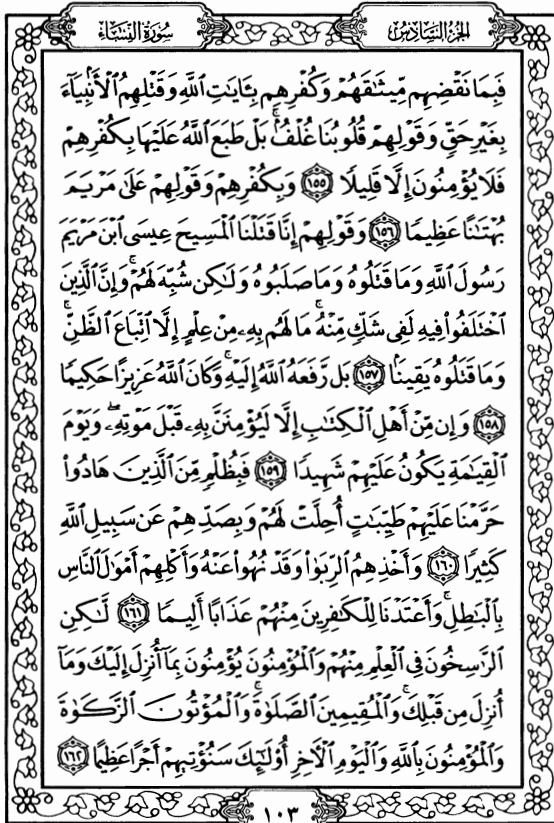 سُورَةُ النِّسَاءِ
الجُزْءُ السَّادِسُ
فَبِمَا نَقْضِهِم مِّيثَٰقَهُمْ وَكُفْرِهِم بِـَٔايَٰتِ ٱللَّهِ وَقَتْلِهِمُ ٱلْأَنۢبِيَآءَ
بِغَيْرِ حَقٍّ وَقَوْلِهِمْ قُلُوبُنَا غُلْفُۢ ۚ بَلْ طَبَعَ ٱللَّهُ عَلَيْهَا بِكُفْرِهِمْ
فَلَا يُؤْمِنُونَ إِلَّا قَلِيلًا ١٥٥ وَبِكُفْرِهِمْ وَقَوْلِهِمْ عَلَىٰ مَرْيَمَ
بُهْتَٰنًا عَظِيمًا ١٥٦ وَقَوْلِهِمْ إِنَّا قَتَلْنَا ٱلْمَسِيحَ عِيسَى ٱبْنَ مَرْيَمَ
رَسُولَ ٱللَّهِ وَمَا قَتَلُوهُ وَمَا صَلَبُوهُ وَلَٰكِن شُبِّهَ لَهُمْ ۚ وَإِنَّ ٱلَّذِينَ
ٱخْتَلَفُوا۟ فِيهِ لَفِى شَكٍّ مِّنْهُ ۚ مَا لَهُم بِهِۦ مِنْ عِلْمٍ إِلَّا ٱتِّبَاعَ ٱلظَّنِّ ۚ
وَمَا قَتَلُوهُ يَقِينًۢا ١٥٧ بَل رَّفَعَهُ ٱللَّهُ إِلَيْهِ ۚ وَكَانَ ٱللَّهُ عَزِيزًا حَكِيمًا
١٥٨ وَإِن مِّنْ أَهْلِ ٱلْكِتَٰبِ إِلَّا لَيُؤْمِنَنَّ بِهِۦ قَبْلَ مَوْتِهِۦ ۖ وَيَوْمَ
ٱلْقِيَٰمَةِ يَكُونُ عَلَيْهِمْ شَهِيدًا ١٥٩ فَبِظُلْمٍ مِّنَ ٱلَّذِينَ هَادُوا۟
حَرَّمْنَا عَلَيْهِمْ طَيِّبَٰتٍ أُحِلَّتْ لَهُمْ وَبِصَدِّهِمْ عَن سَبِيلِ ٱللَّهِ
كَثِيرًا ١٦٠ وَأَخْذِهِمُ ٱلرِّبَوٰا۟ وَقَدْ نُهُوا۟ عَنْهُ وَأَكْلِهِمْ أَمْوَٰلَ ٱلنَّاسِ
بِٱلْبَٰطِلِ ۚ وَأَعْتَدْنَا لِلْكَٰفِرِينَ مِنْهُمْ عَذَابًا أَلِيمًا ١٦١ لَّٰكِنِ
ٱلرَّٰسِخُونَ فِى ٱلْعِلْمِ مِنْهُمْ وَٱلْمُؤْمِنُونَ يُؤْمِنُونَ بِمَآ أُنزِلَ إِلَيْكَ وَمَآ
أُنزِلَ مِن قَبْلِكَ ۚ وَٱلْمُقِيمِينَ ٱلصَّلَوٰةَ ۚ وَٱلْمُؤْتُونَ ٱلزَّكَوٰةَ
وَٱلْمُؤْمِنُونَ بِٱللَّهِ وَٱلْيَوْمِ ٱلْءَاخِرِ أُو۟لَٰٓئِكَ سَنُؤْتِيهِمْ أَجْرًا عَظِيمًا ١٦٢
١٠٣